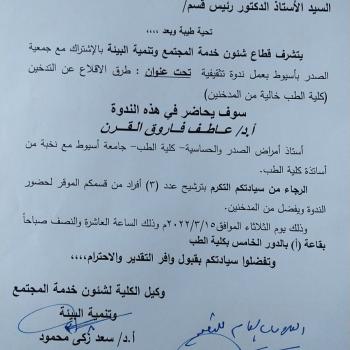 السيد الأستاذ الدكتور رئيس قسم/
تحية طيبة وبعد ،،،،
يتشرف قطاع شئون خدمة المجتمع وتنمية البيئة بالإشتراك مع جمعية
الصدر بأسيوط بعمل ندوة تثقيفية تحت عنوان : طرق الاقلاع عن التدخين
(كلية الطب خالية من المدخنين)
سوف يحاضر في هذه الندوة
أ.د/ عاطف فاروق القرن
أستاذ أمراض الصدر والحساسية- كلية الطب- جامعة أسيوط مع نخبة من
أساتذة كلية الطب.
الرجاء من سيادتكم التكرم بترشيح عدد (٣) أفراد من قسمكم الموقر لحضور
الندوة ويفضل من المدخنين.
وذلك يوم الثلاثاء الموافق٢٠٢٢/٣/١٥م وذلك الساعة العاشرة والنصف صباحاً
بقاعة (أ) بالدور الخامس بكلية الطب
وتفضلوا سيادتكم بقبول وافر التقدير والاحترام،،،،
وكيل الكلية لشئون خدمة المجتمع
وتنمية البيئة
أ.د/ سعد زكى محمود